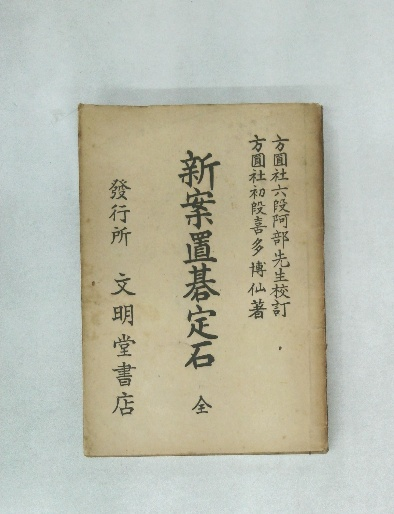 方圓社六段阿部先生校訂
方圓社初段喜多博仙著
新案置碁定石 全
發行所 文明堂書店